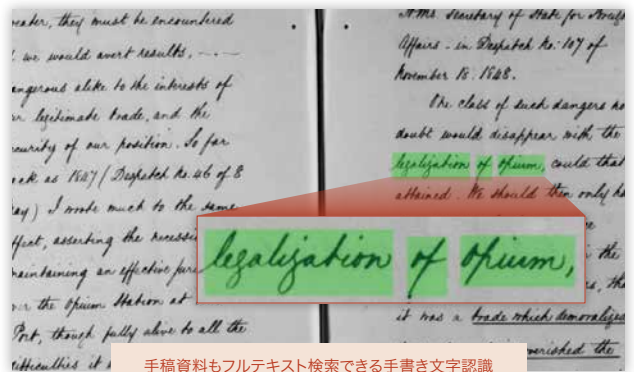 greater, they must be encountered
if we would avert results, —
dangerous alike to the interests of
our legitimate trade, and the
security of our position. So far
back as 1847 (Despatch No. 46 of 8
May) I wrote much to the same
effect, asserting the necessi
maintaining an effective
over the Opium Station at
Port, though fully alive to all the
difficulties it
H.M's. Secretary of State for Foreign
Affairs - in Despatch No: 107 of
November 18. 1848.
One class of such dangers no
doubt would disappear with the
legalization of opium, could that
attained. We should then only ha
legalization of opium,
the
it was a trade which demoralized
impoverished the
手稿資料もフルテキスト検索できる手書き文字認識